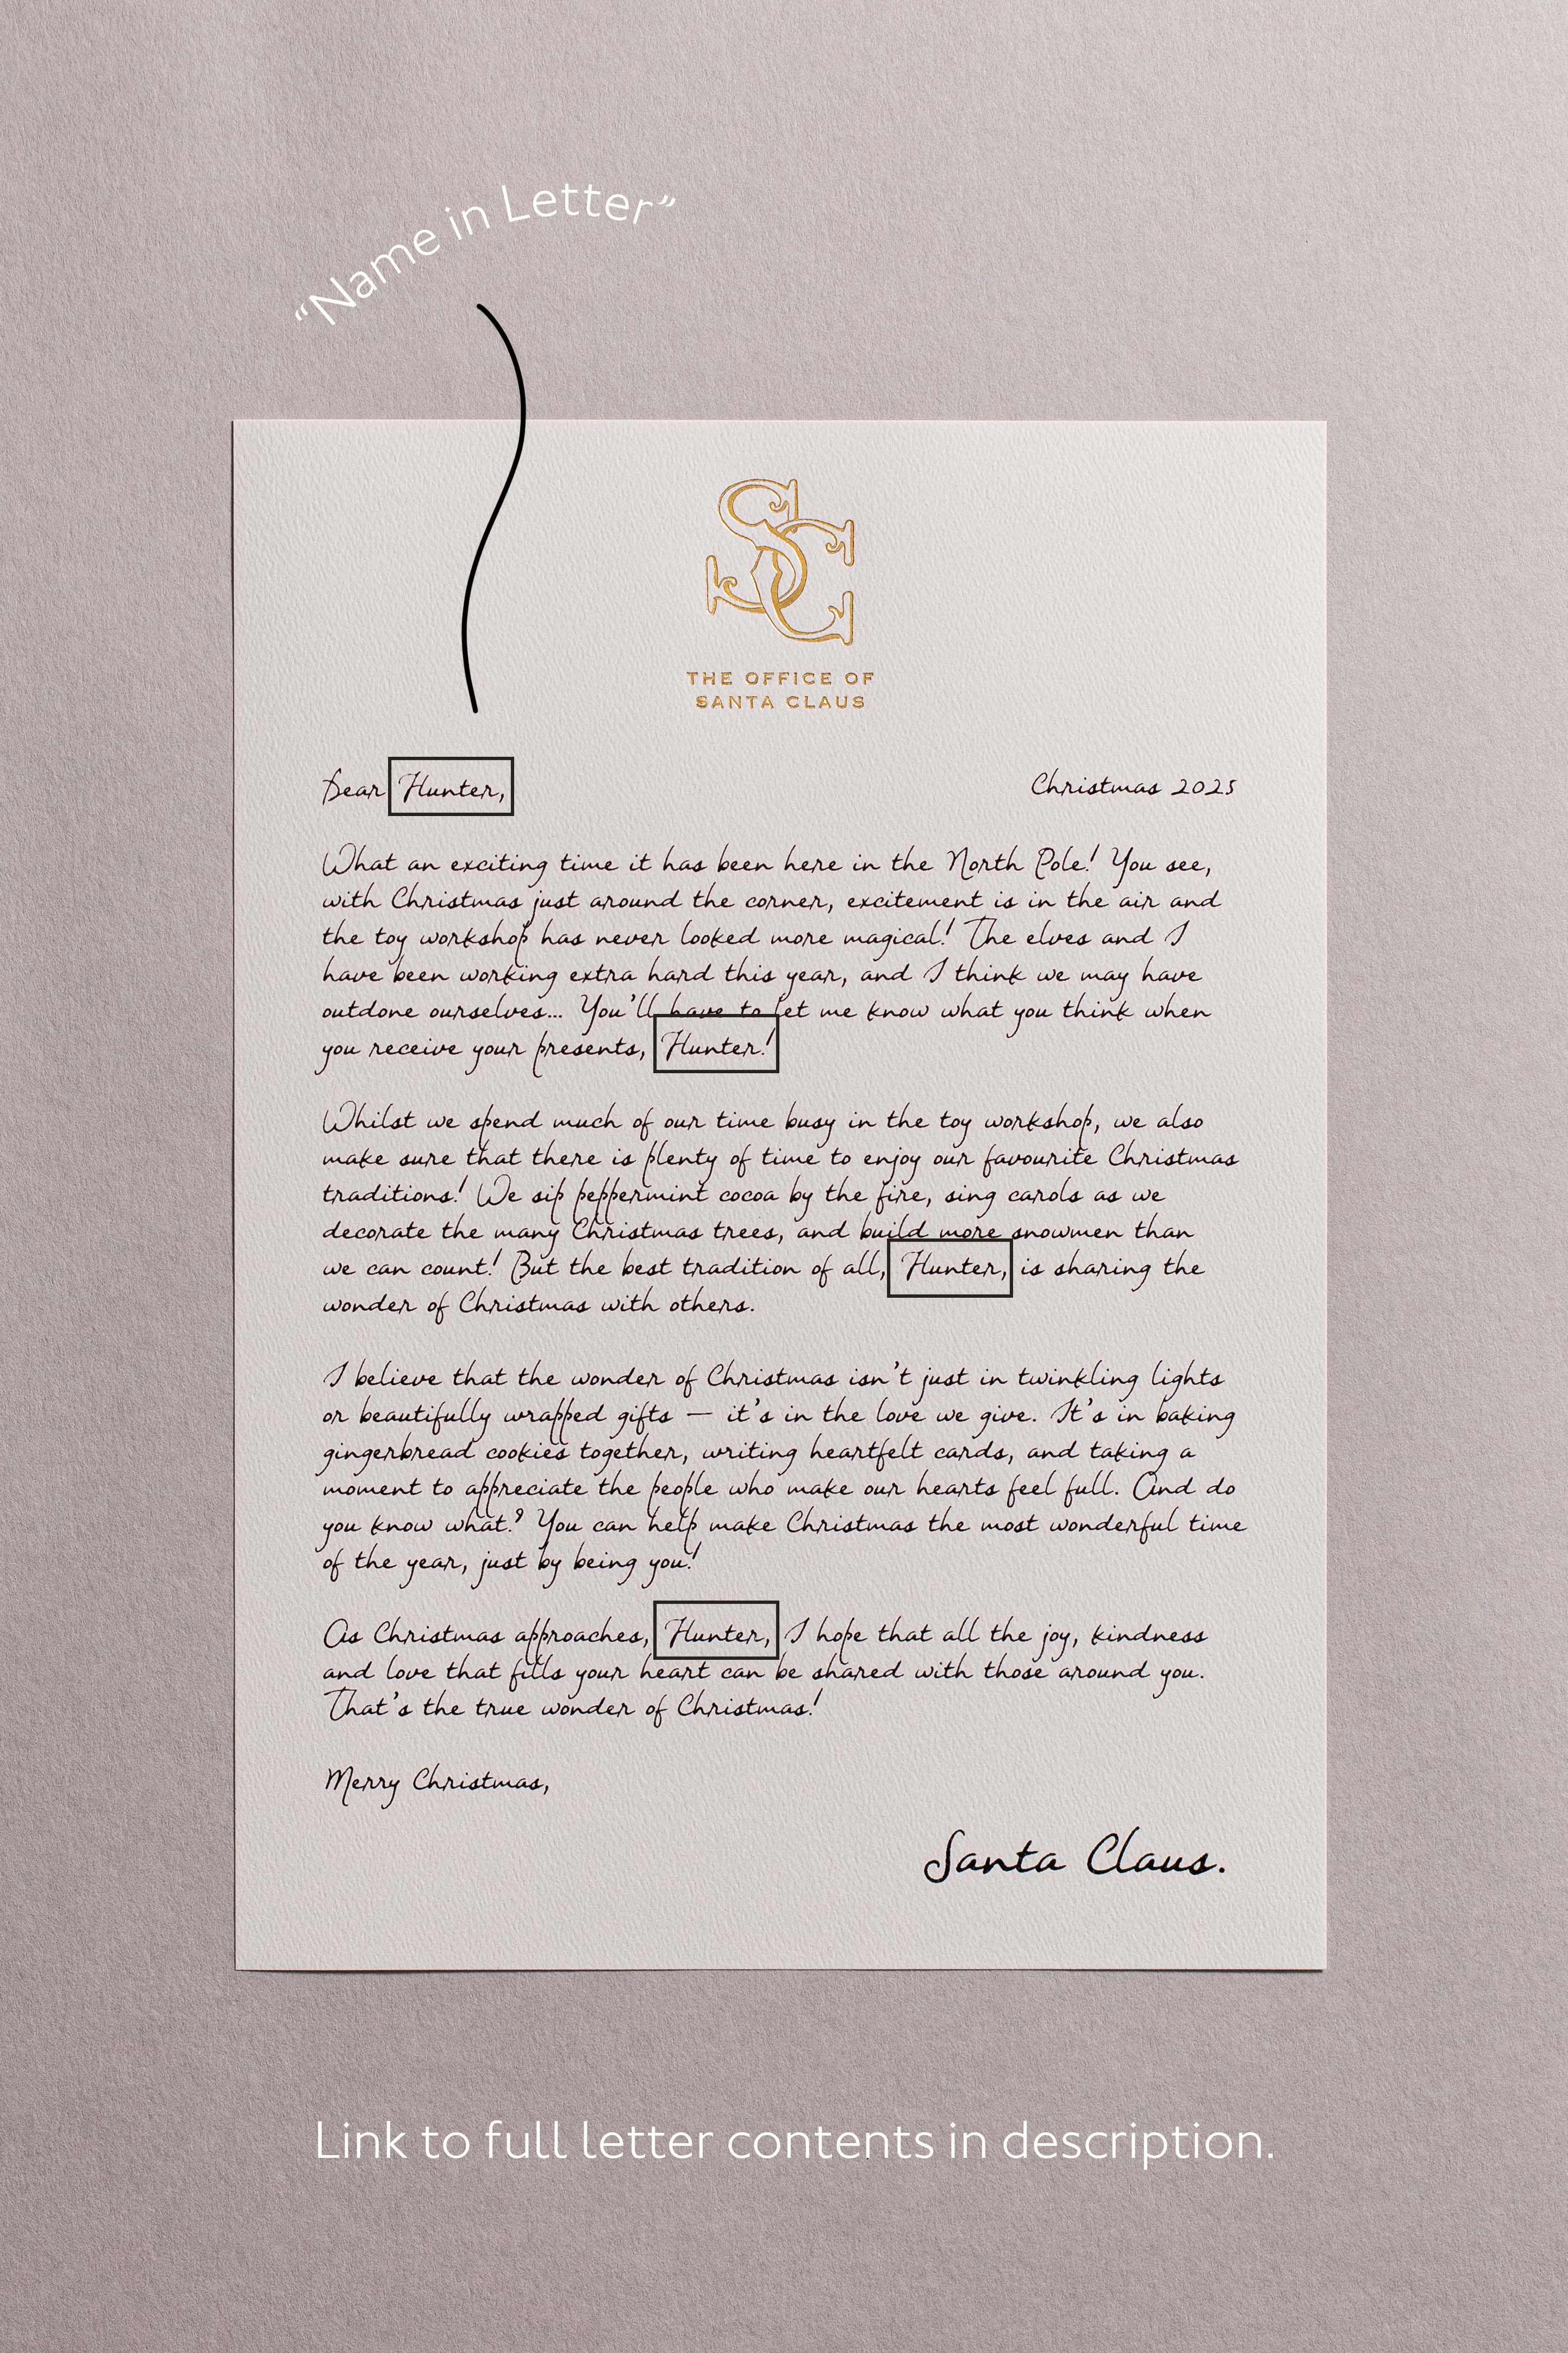 “Name in Letter”
SC
THE OFFICE OF
SANTA CLAUS
Dear Hunter,
Christmas 2025
What an exciting time it has been here in the North Pole! You see,
with Christmas just around the corner, excitement is in the air and
the toy workshop has never looked more magical! The elves and I
have been working extra hard this year, and I think we may have
outdone ourselves... You’ll have to let me know what you think when
you receive your presents, Hunter!
Whilst we spend much of our time busy in the toy workshop, we also
make sure that there is plenty of time to enjoy our favourite Christmas
traditions! We sip peppermint cocoa by the fire, sing carols as we
decorate the many Christmas trees, and build more snowmen than
we can count! But the best tradition of all, Hunter, is sharing the
wonder of Christmas with others.
I believe that the wonder of Christmas isn’t just in twinkling lights
or beautifully wrapped gifts – it’s in the love we give. It’s in baking
gingerbread cookies together, writing heartfelt cards, and taking a
moment to appreciate the people who make our hearts feel full. And do
you know what? You can help make Christmas the most wonderful time
of the year, just by being you!
As Christmas approaches, Hunter, I hope that all the joy, kindness
and love that fills your heart can be shared with those around you.
That’s the true wonder of Christmas!
Merry Christmas,
Santa Claus.
Link to full letter contents in description.